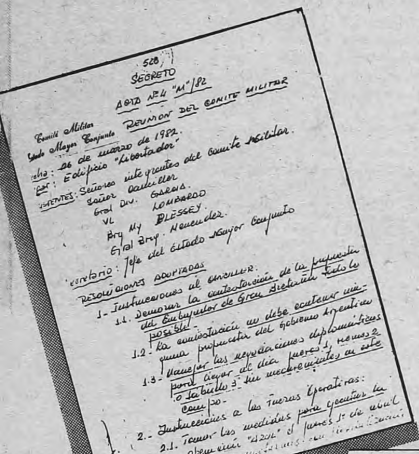 508
SECRETO
ACTA Nº4 "M"/82
Comité Militar
Estado Mayor Conjunto REUNION DEL COMITE MILITAR
Fecha: 26 de marzo de 1982.
Lugar: Edificio "Libertador"
Señores integrantes del Comité Militar.
Señor Canciller
Gral Div. GARCIA.
VL LOMBARDO
Brig My PLESSEY.
Gral Brig. Menendez.
Secretario: Jefe del Estado Mayor Conjunto
RESOLUCIONES ADOPTADAS
1- Instrucciones al canciller.
1.1. Demorar la contestación de la propuesta
del Embajador de Gran Bretaña todo lo
posible.
1.2- La contestación no debe contener nin-
guna propuesta del Gobierno Argentino
1.3- Manejar las negociaciones diplomáticas
para llegar al día jueves 1, viernes 2
o sábado 3 sin inconvenientes en este
campo.
2.- Instrucciones a las fuerzas Operativas:
2.1- Tomar las medidas para ejecutar la
"AZUL" el jueves 1º de abril